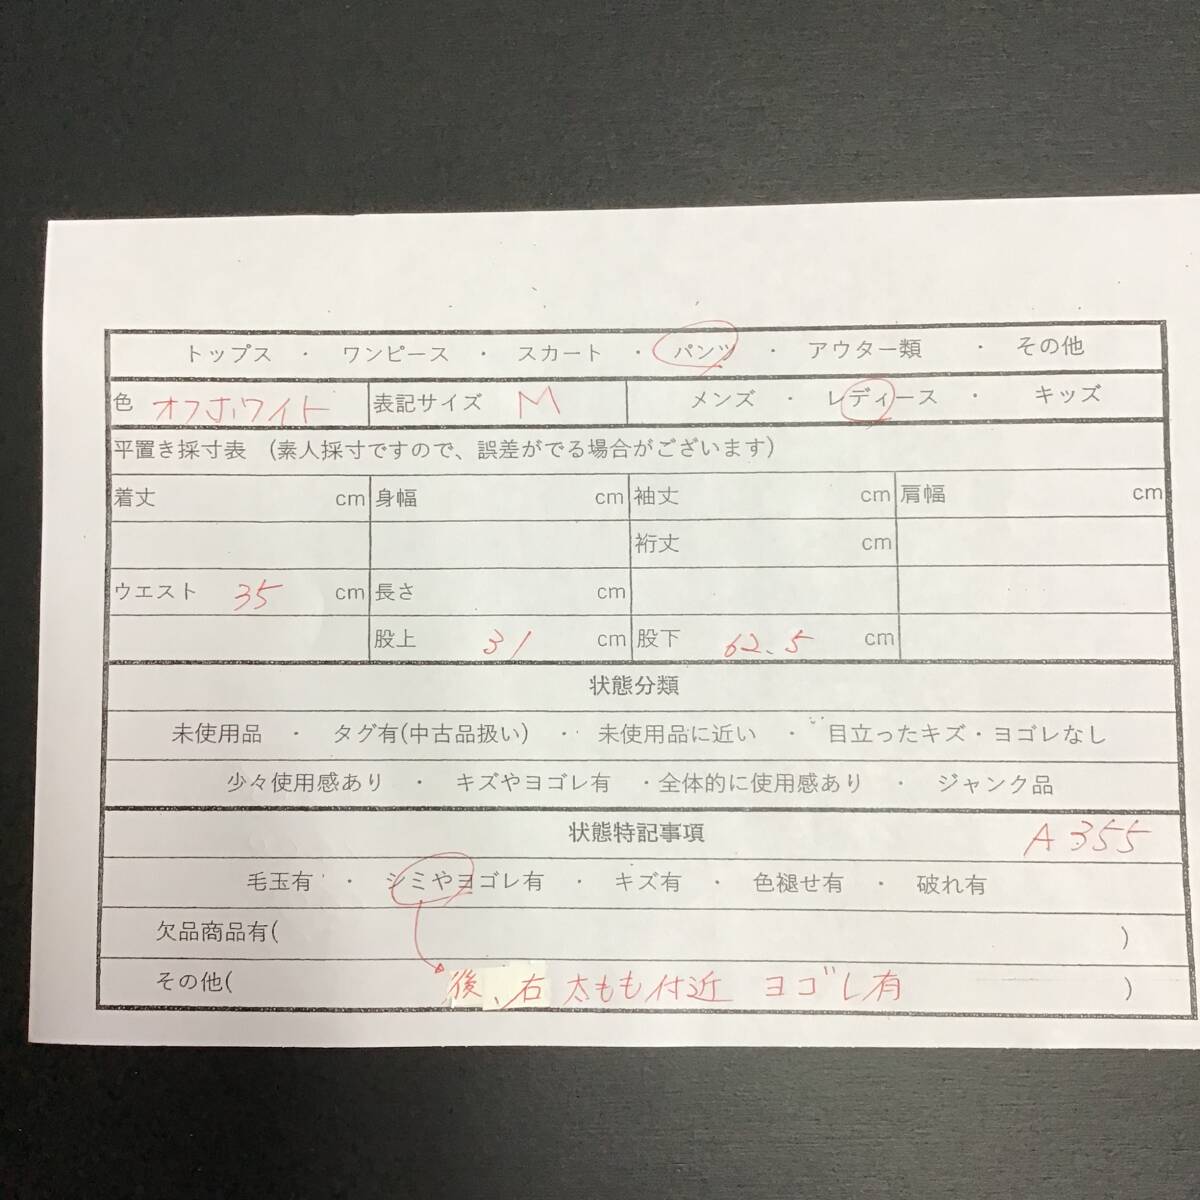 トップス ・ ワンピース ・ スカート ・ パンツ ・ アウター類 ・ その他
色 オフホワイト 表記サイズ M メンズ ・ レディース ・ キッズ
平置き採寸表 (素人採寸ですので、誤差がでる場合がございます)
着丈 cm 身幅 cm 袖丈 cm 肩幅 cm
裄丈 cm
ウエスト 35 cm 長さ cm
股上 31 cm 股下 62.5 cm
状態分類
未使用品 ・ タグ有(中古品扱い) ・ 未使用品に近い ・ 目立ったキズ・ヨゴレなし
少々使用感あり ・ キズやヨゴレ有 ・全体的に使用感あり ・ ジャンク品
状態特記事項 A355
毛玉有 ・ シミやヨゴレ有 ・ キズ有 ・ 色褪せ有 ・ 破れ有
欠品商品有( )
その他( 後、右 太もも付近 ヨゴレ有 )